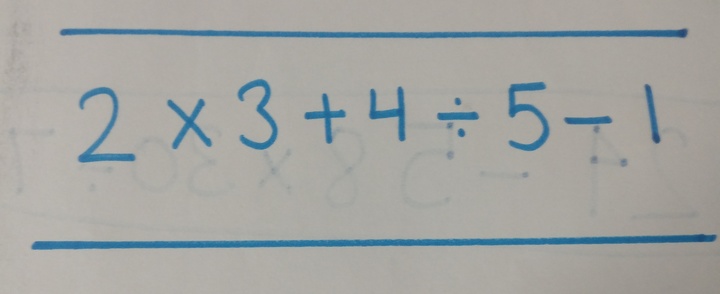 2 × 3 + 4 ÷ 5 - 1